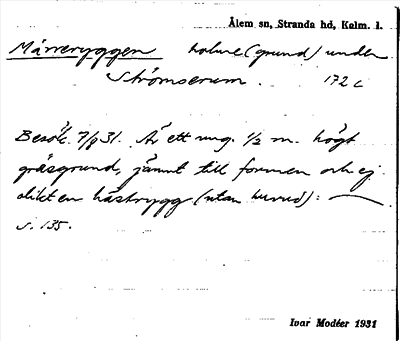 Ålem sn, Stranda hd, Kalm. l.
Märreryggen holme (grund) under
Strömserum. 172 c
Besök. 7/9 31. Är ett ung. 1/2 m. högt
gräsgrund, jämnt till formen och ej
olikt en hästrygg (utan huvud): —
s. 135.
Ivar Modéer 1931